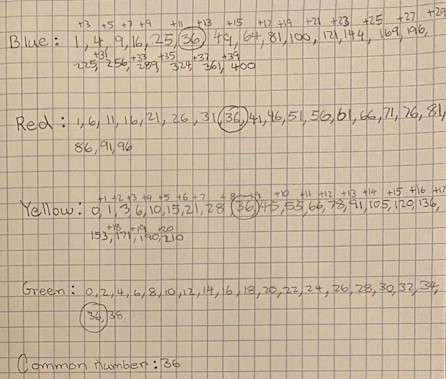 +3 +5 +7 +9 +11 +13 +15 +17 +19 +21 +23 +25 +27 +29
Blue: 1, 4, 9, 16, 25, 36, 49, 64, 81, 100, 121, 144, 169, 196,
+31 +33 +35 +37 +39
225, 256, 289, 324, 361, 400
Red: 1, 6, 11, 16, 21, 26, 31, 36, 41, 46, 51, 56, 61, 66, 71, 76, 81,
86, 91, 96
+1 +2 +3 +4 +5 +6 +7 +8 +9 +10 +11 +12 +13 +14 +15 +16 +17
Yellow: 0, 1, 3, 6, 10, 15, 21, 28, 36, 45, 55, 66, 78, 91, 105, 120, 136,
+18 +19 +20
153, 171, 190, 210
Green: 0, 2, 4, 6, 8, 10, 12, 14, 16, 18, 20, 22, 24, 26, 28, 30, 32, 34,
36, 38
Common number: 36